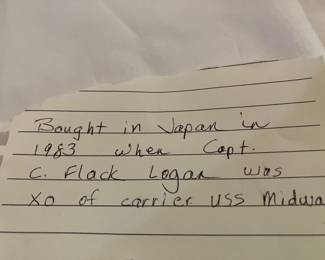 Bought in Japan in
1983 when Capt.
C. Flack Logan was
XO of carrier USS Midwa